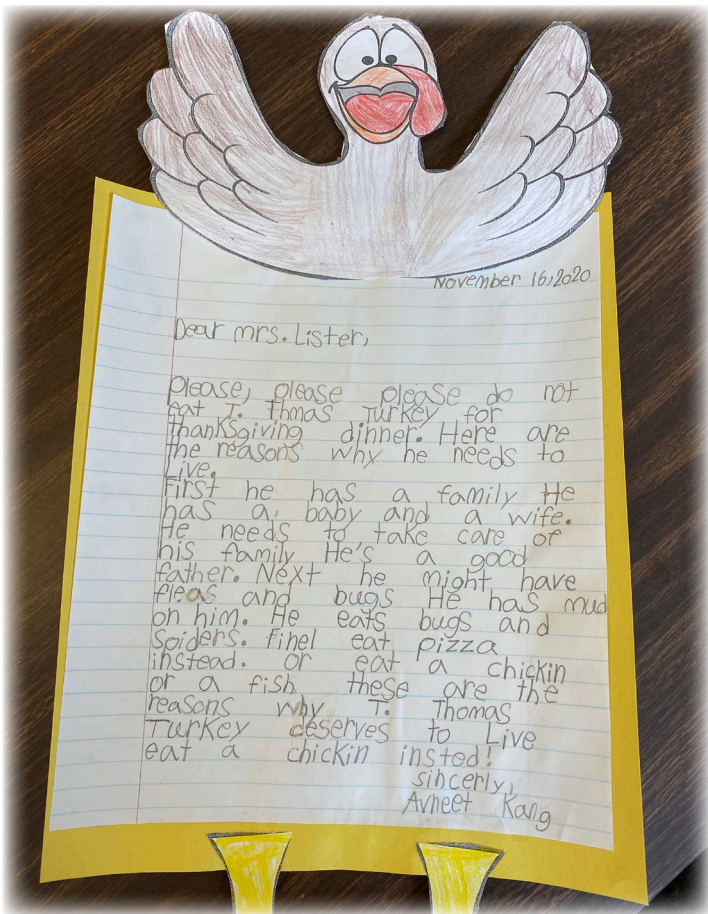 November 16, 2020
Dear mrs. Lister,
Please, please please do not
eat T. thmas Turkey for
thanksgiving dinner. Here are
the reasons why he needs to
Live.
First he has a family He
has a baby and a wife.
He needs to take care of
his family He's a good
father. Next he might have
fleas and bugs He has mud
on him. He eats bugs and
Spiders. finel eat pizza
instead. or eat a chickin
or a fish these are the
reasons why T. Thomas
Turkey deserves to Live
eat a chickin insted!
sincerly,
Avneet Kang